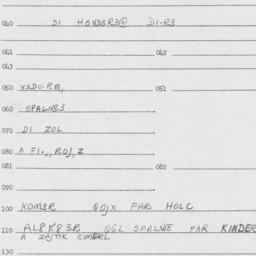 040 DI HOND3R3@ DI-R3
041 042
043
050 V3DU-RM, 051
060 SPALN83
070 DI ZOL
080 A FI
081 082
090
100 KOM3R Q0jX FAR HOLC
110 AL8K83R Q6L SPALNIE FAR KINDER
A ZAJTIK CIMERL
130